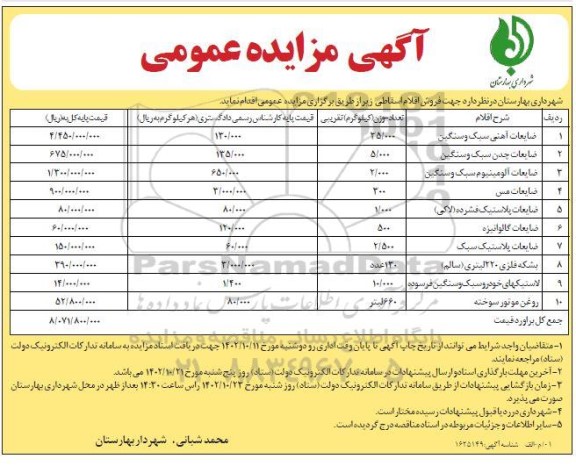 آگهی مزایده عمومی
شهرداری بهارستان
شهرداری بهارستان در نظر دارد جهت فروش اقلام اسقاطی زیر از طریق برگزاری مزایده عمومی اقدام نماید.
ردیف شرح اقلام تعداد-وزن (کیلوگرم) تقریبی قیمت پایه کارشناس رسمی دادگستری (هر کیلوگرم به ریال) قیمت پایه کل به (ریال)
۱ ضایعات آهنی سبک و سنگین ۳۵/۰۰۰ ۱۳۰/۰۰۰ ۴/۴۵۰/۰۰۰/۰۰۰
۲ ضایعات چدن سبک و سنگین ۵/۰۰۰ ۱۳۵/۰۰۰ ۶۷۵/۰۰۰/۰۰۰
۳ ضایعات آلومینیوم سبک و سنگین ۲/۰۰۰ ۶۵۰/۰۰۰ ۱/۳۰۰/۰۰۰/۰۰۰
۴ ضایعات مس ۳۰۰ ۳/۰۰۰/۰۰۰ ۹۰۰/۰۰۰/۰۰۰
۵ ضایعات پلاستیک فشرده (لاکی) ۱/۰۰۰ ۸۰/۰۰۰ ۸۰/۰۰۰/۰۰۰
۶ ضایعات گالوانیزه ۵۰۰ ۱۲۰/۰۰۰ ۶۰/۰۰۰/۰۰۰
۷ ضایعات پلاستیک سبک ۲/۵۰۰ ۶۰/۰۰۰ ۱۵۰/۰۰۰/۰۰۰
۸ بشکه فلزی ۲۲۰ لیتری (سالم) ۱۳۰ عدد ۳/۰۰۰/۰۰۰ ۳۹۰/۰۰۰/۰۰۰
۹ لاستیکهای خودرو سبک و سنگین فرسوده ۱۰/۰۰۰ ۱/۴۰۰ ۱۴/۰۰۰/۰۰۰
۱۰ روغن موتور سوخته ۶۶۰ لیتر ۸۰/۰۰۰ ۵۲/۸۰۰/۰۰۰
جمع کل براورد قیمت ۸/۰۷۱/۸۰۰/۰۰۰
۱- متقاضیان واجد شرایط می توانند از تاریخ چاپ آگهی تا پایان وقت اداری روز دوشنبه مورخ ۱۴۰۲/۱۰/۱۱ جهت دریافت اسناد مزایده به سامانه تدارکات الکترونیک دولت
(ستاد) مراجعه نمایند.
۲- آخرین مهلت بارگذاری اسناد و ارسال پیشنهادات در سامانه تدارکات الکترونیک دولت (ستاد) روز پنج شنبه مورخ ۱۴۰۲/۱۰/۲۱ می باشد.
۳- زمان بازگشایی پیشنهادات از طریق سامانه تدارکات الکترونیک دولت (ستاد) روز شنبه مورخ ۱۴۰۲/۱۰/۲۳ راس ساعت ۱۴:۳۰ بعد از ظهر در محل شهرداری بهارستان
صورت می پذیرد.
۴- شهرداری در رد یا قبول پیشنهادات رسیده مختار است.
۵- سایر اطلاعات و جزئیات مربوطه در اسناد مناقصه درج گردیده است.
محمد شبانی، شهردار بهارستان
۱۰/م-الف شناسه آگهی: ۱۶۲۵۱۴۹
ParsNamadData